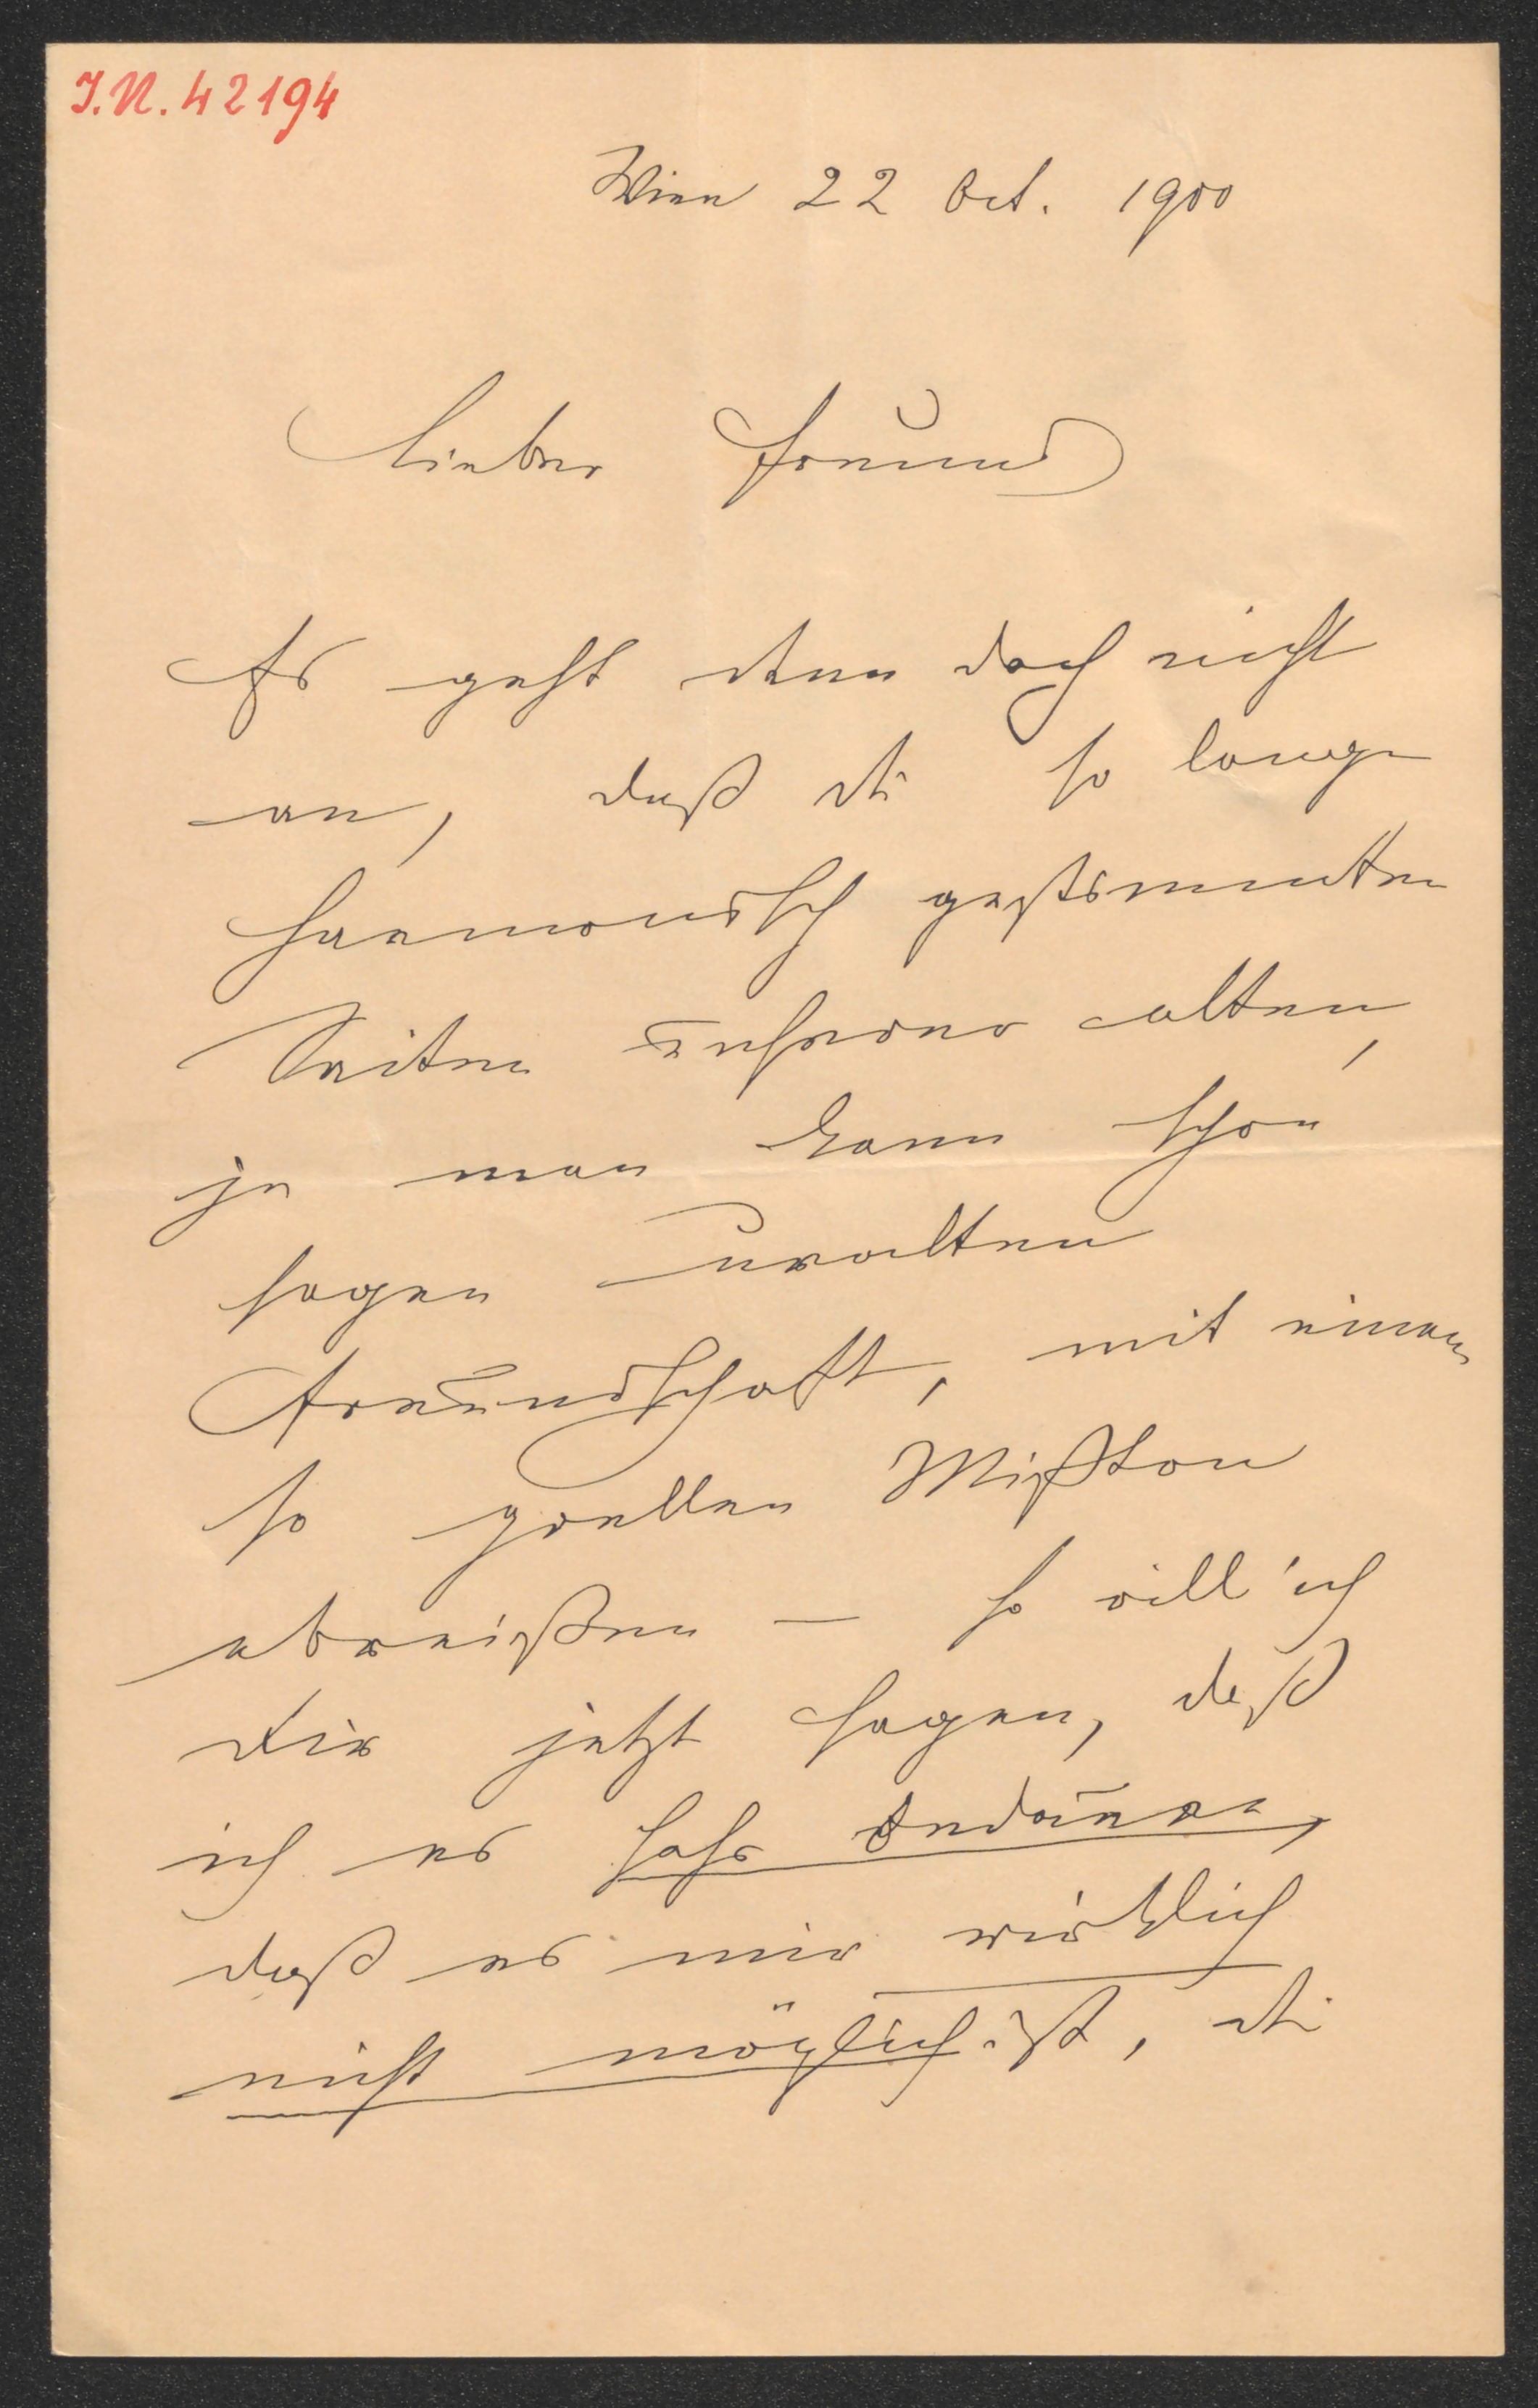 I.N. 42194
Wien 22 Oct. 1900
Lieber Freund
Es geht denn doch nicht
an, daß die so lange
harmonisch gestimmten
Saiten unserer alten,
ja man kann schon
sagen uralten
Freundschaft, mit einem
so grellen Mißton
abreißen – so will ich
Dir jetzt sagen, daß
ich es sehr bedauere,
daß es mir wirklich
nicht möglich ist, die